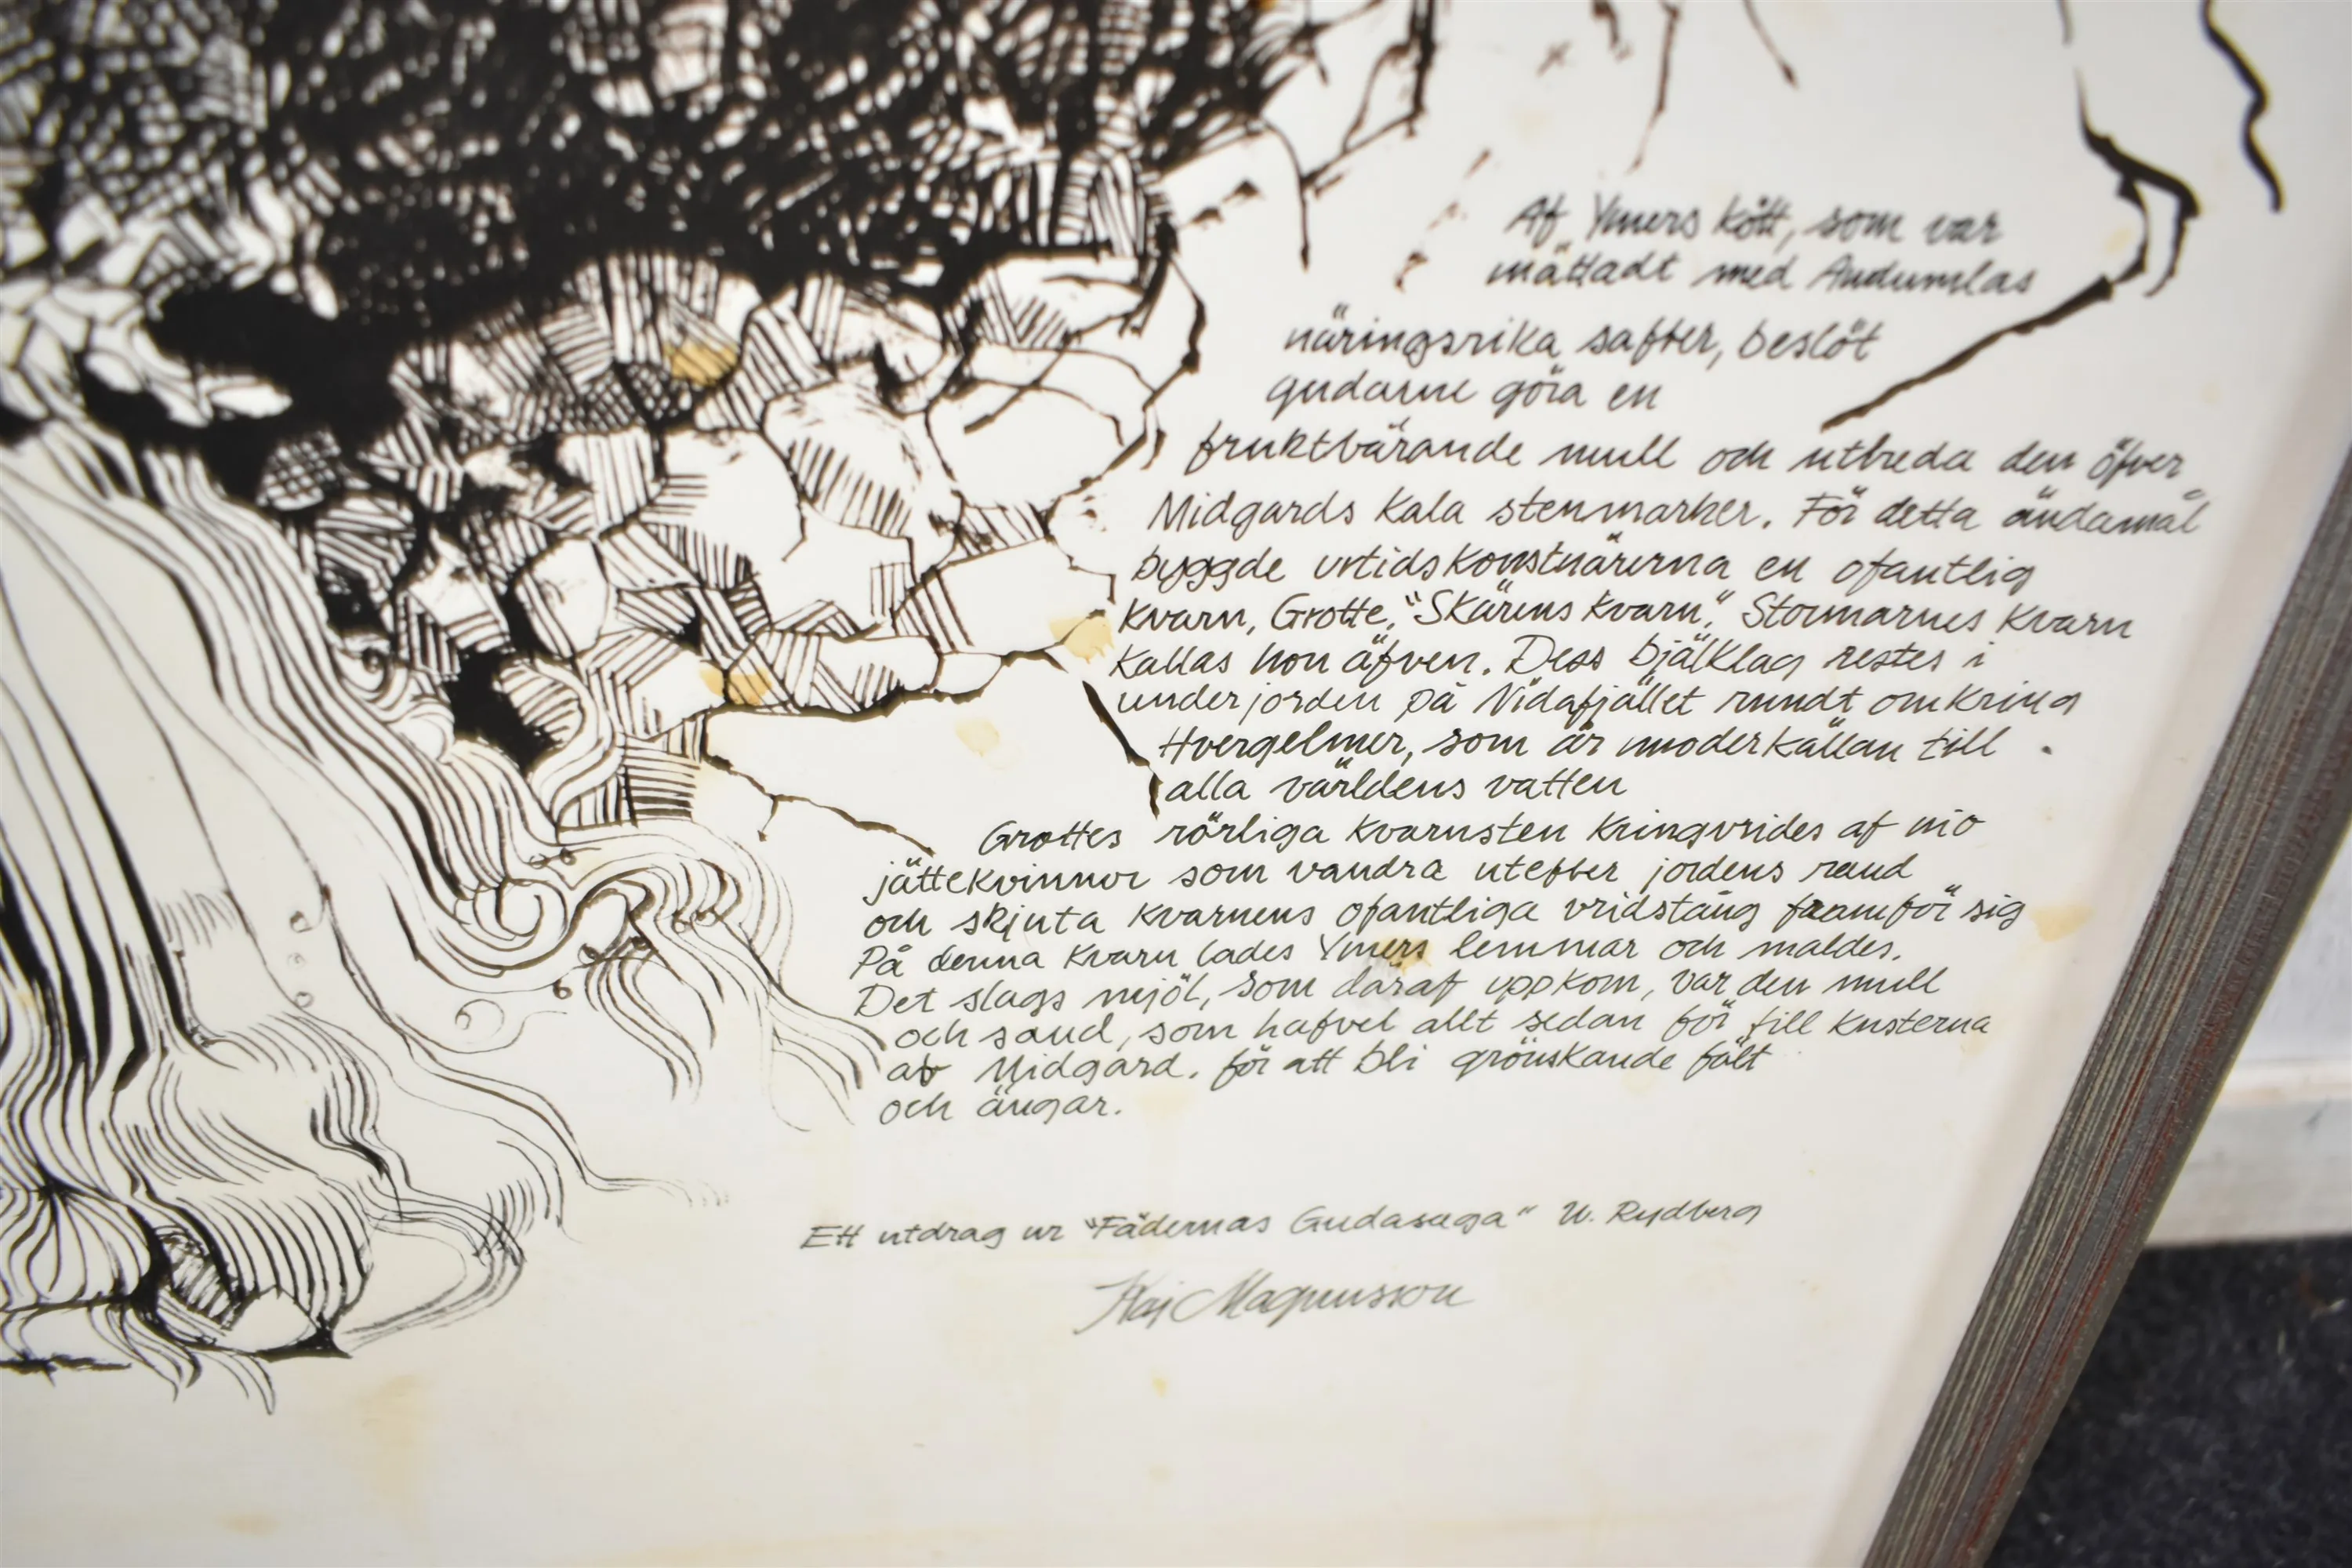 Af Ymers kött, som var
mättadt med Audumlas
näringsrika safter, beslöt
gudarne göra en
fruktbärande mull och utbreda den öfver
Midgards kala stenmarker. För detta ändamål
byggde urtidskonstnärerna en ofantlig
kvarn, Grotte, "Skärens kvarn", Stormarnes kvarn
kallas hon äfven. Dess bjälklag restes i
underjorden på Nidafjället rundt omkring
Hvergelmer, som är moderkällan till
alla världens vatten
Grottes rörliga kvarnsten kringvrides af nio
jättekvinnor som vandra utefter jordens rand
och skjuta kvarnens ofantliga vridstång framför sig
På denna kvarn lades Ymers lemmar och maldes.
Det slags mjöl, som däraf uppkom, var den mull
och sand, som hafvet allt sedan för till kusterna
af Midgard. för att bli grönskande fält
och ängar.
Ett utdrag ur "Fädernas Gudasaga" W. Rydberg
Kaj Magnusson